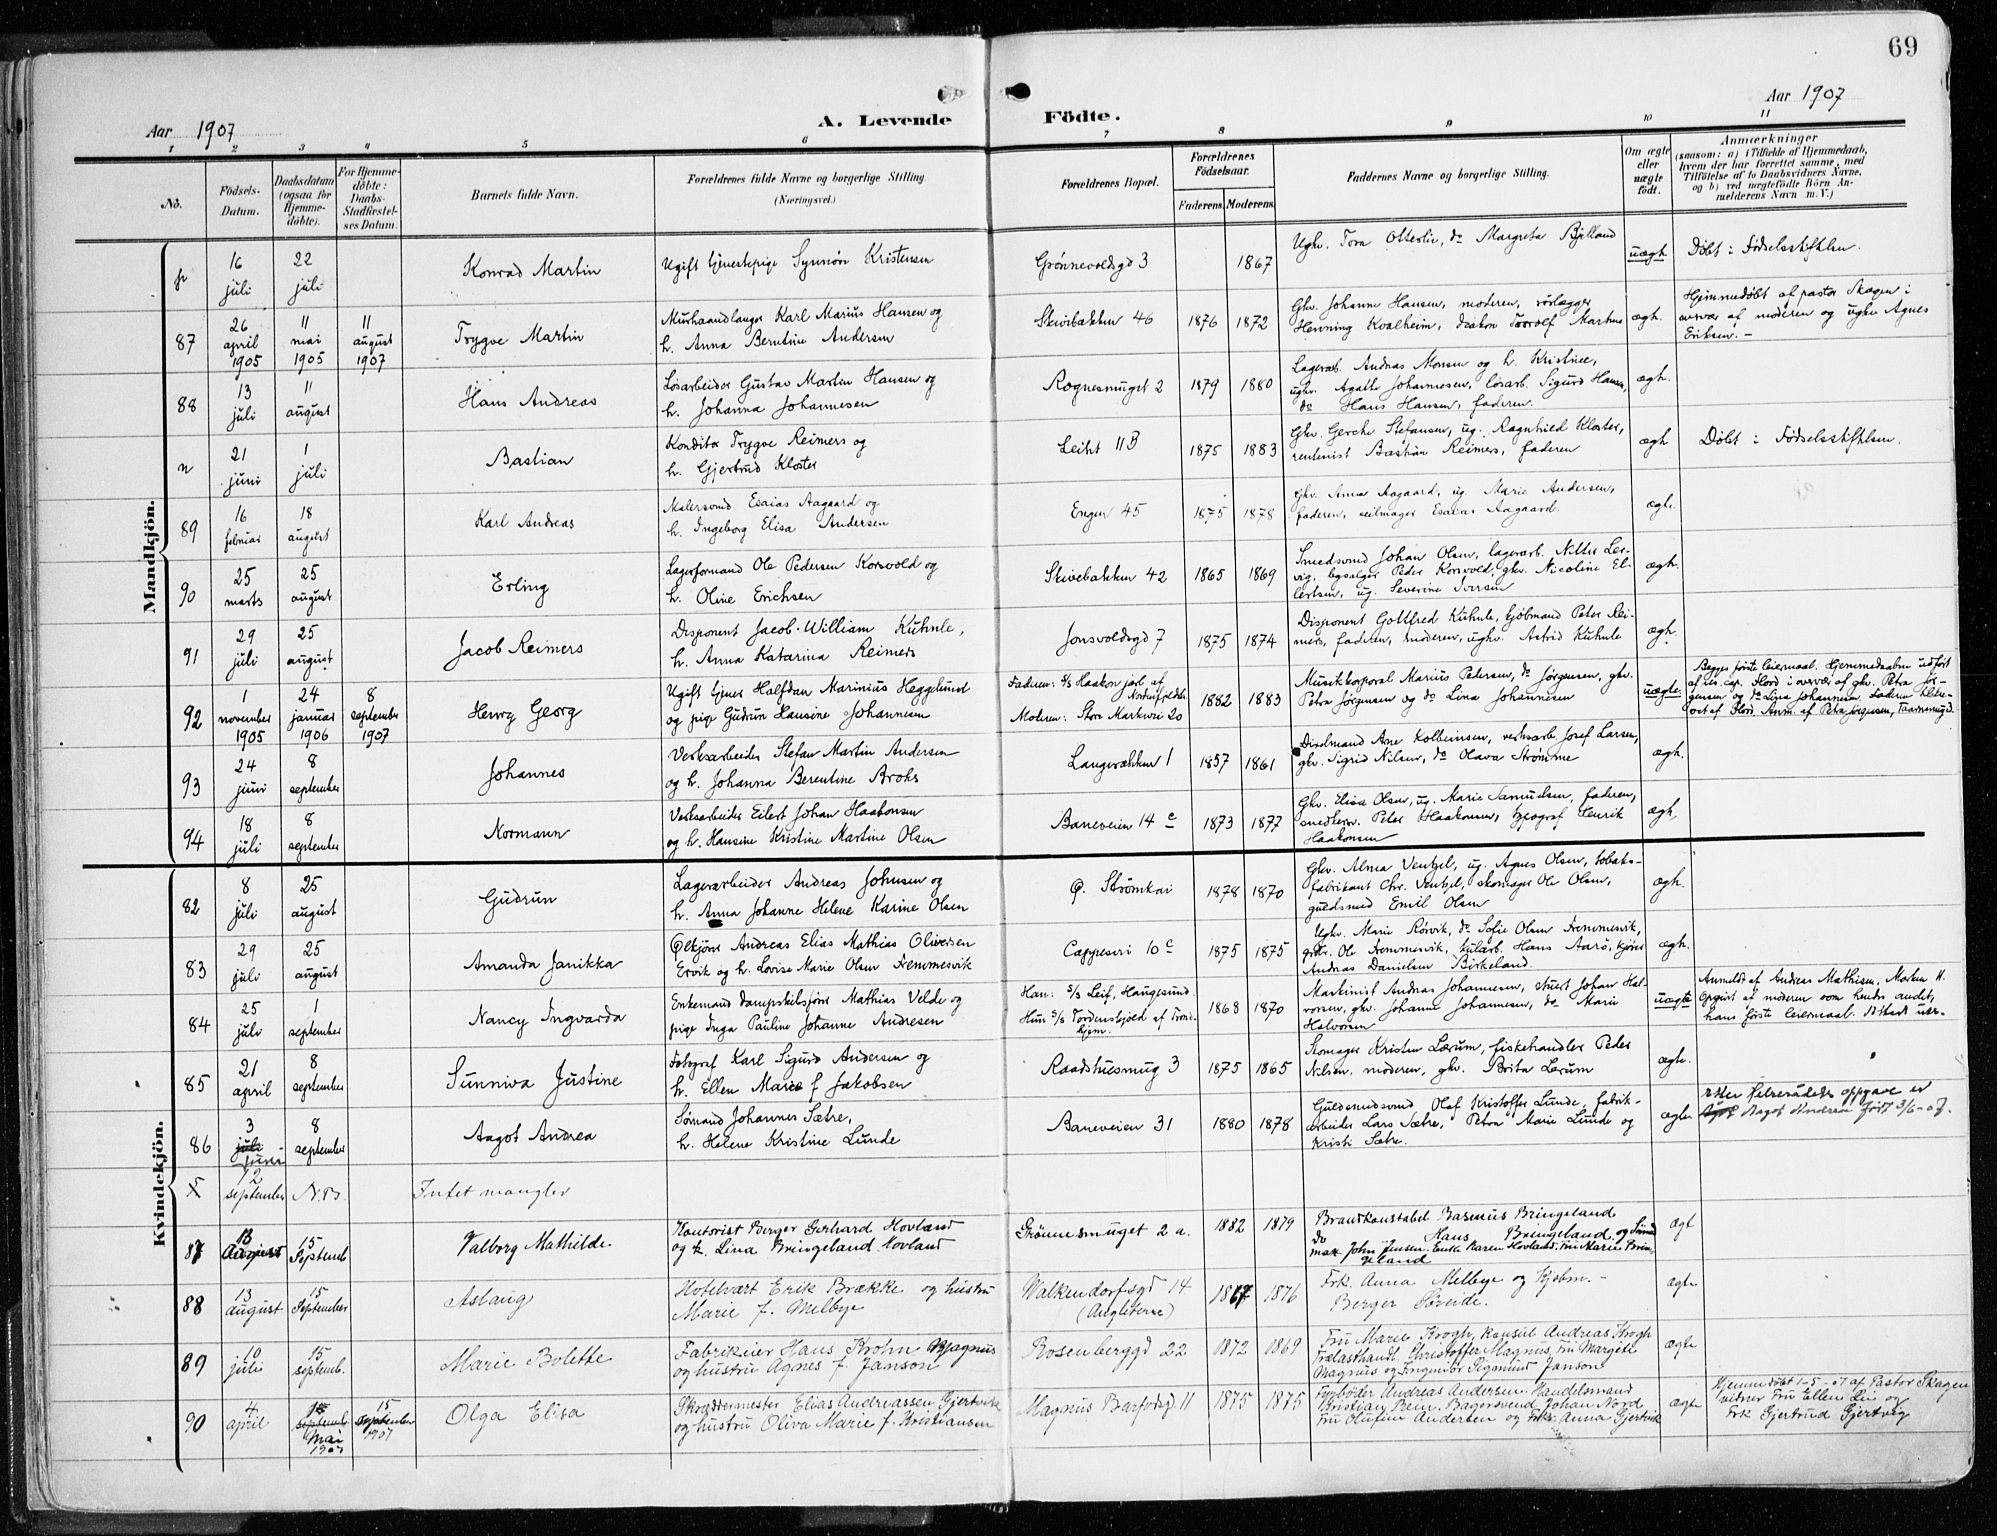 69
Aar 1907
A. Levende Födte.
Aar 1907
1 2 3 4 5 6 7 8 9 10 11
No.
Födsels-Datum.
Daabsdatum (ogsaa for Hjemme-döbte).
For Hjemme-döbte: Daabs-Stadfæstel-ses Datum.
Barnets fulde Navn.
Forældrenes fulde Navne og borgerlige Stilling.
(Næringsvei.)
Forældrenes Bopæl.
Forældrenes Födselsaar.
Faderens. Moderens.
Faddernes Navne og borgerlige Stilling.
Om ægte eller uægte födt.
Anmærkninger
(saasom: a) i Tilfælde af Hjemmedaab,
hvem der har forrettet samme, med
Tilföielse af to Daabsvidners Navne,
og b) ved uægtefödte Börn An-
melderens Navn m. V.)
Mandkjön.
16 juli 22 juli Konrad Martin
Ugift tjenestepige Synnøve Kristensen
Grønnevoldsgd 3 1867
Ugkv. Tora Otterlei, do Margreta Bjelland
uægt Døbt i Fødselsstiftelsen.
87 26 april 1905 11 mai 1905 11 august 1907 Trygve Martin
Murhaandlanger Karl Marius Hansen og
h. Anna Berntine Andersen
Skivebakken 46 1876 1872
Gkv. Johanne Hansen, moderen, rørlægger
Henning Kvalheim, diakon Torolf Martins
ægh.
Hjemmedøbt af pastor Skagen i
overvær af moderen og ugkv Agnes
Eriksen. -
88 13 juli 11 august Hans Andreas
Løsarbeider Gustav Martin Hansen og
h. Johanna Johannesen
Rognesmuget 2 1879 1880
Lagerarb. Andreas Monsen og h. Kristine,
ugkv. Agathe Johannesen, løsarb. Sigurd Hansen,
do Hans Hansen, faderen.
ægh.
n 21 juni 1 juli Bastian
Konditor Trygve Reimers og
h. Gjertrud Kloster
Leitet 11 B 1875 1883
Gkv. Gerche Stefansen, ug. Ragnhild Kloster,
rentenist Bastian Reimers, faderen
ægh Døbt i Fødselsstiftelsen.
89 16 februar 18 august Karl Andreas
Malersvend Esaias Aagaard og
h. Ingeborg Elisa Andersen
Engen 45 1875 1878
Gkv. Anna Aagaard, ug. Marie Andersen,
faderen, seilmager Esaias Aagaard.
ægte.
90 25 marts 25 august Erling
Lagerformand Ole Pedersen Korsvold og
h. Oline Erichsen
Skivebakken 42 1865 1869
Smedsvend Johan Olsen, lagerarb. Nils Ler-
vig, bysælger Peder Korsvold, gkv. Nicoline El-
lertsen, ug. Severine Iversen
ægh.
91 29 juli 25 august Jacob Reimers
Disponent Jacob William Kuhnle,
h. Anna Katarina Reimers
Jonsvoldsgd 7 1875 1874
Disponent Gottfred Kuhnle, Kjøbmand Peter Rei-
mers, faderen, moderen, ugkv. Astrid Kuhnle
ægh.
92 1 november 1905 24 januar 1906 8 september 1907 Henry Georg
Ugift tjener Halfdan Marinius Heggelund
og pige Gudrun Hansine Johannesen
Faderen: S/S Haakon jarl af Nordenfjeldske
Moderen: Store Markvei 20 1882 1883
Musikkorporal Marius Petersen, do Jørgensen, gkv.
Petra Jørgensen og do Lina Johannesen
uægte
Begges første leiermaal. Hjemmedaaben udført
af res. cap. Hord i overvær af gkv. Petra Jør-
gensen og do Lina Johannesen.
93 24 juni 8 september Johannes
Verksarbeider Stefan Martin Andersen
og h. Johanna Berentine Broks
Langerækken 1 1857 1861
Ane Kolbeinsen, verksarb. Josef Larsen,
gkv. Sigrid Nilsen, do Olava Strømme
ægh.
94 18 juli 8 september Normann
Verksarbeider Eilert Johan Haakonsen
og h. Hansine Kristine Martine Olsen
Baneveien 14 c 1873 1877
Gkv. Elisa Olsen, ug. Marie Samuelsen, faderen,
snedkerm. Peter Haakonsen, typograf Henrik
Haakonsen
ægh.
Kvindekjön.
82 8 juli 25 august Gudrun
Lagerarbeider Andreas Johnsen og
h. Anna Johanne Helene Karine Olsen
Ø. Strømkai 1878 1870
Gkv. Alma Ventzel, ug. Agnes Olsen, tobaks-
fabrikant Chr. Ventzel, skomager Ole Olsen,
guldsmed Emil Olsen
ægh.
83 29 juli 25 august Amanda Janikka
Ølkjører Andreas Elias Mathias Oliversen
Ervik og h. Lovise Marie Olsen Fremmesvik
Cappesvei 10 c 1875 1875
Ugkv. Marie Rørvik, do Sofie Olsen Fremmesvik,
Ole Fremmesvik, kularb. Hans Aarø, kjører
Andreas Danielsen Birkeland.
ægh.
84 25 juli 1 september Nancy Ingvarda
Enkemand dampskibsfører Mathias Velde og
pige Inga Pauline Johanne Andresen
Han: S/S Leif, Haugesund.
Hun S/S Tordenskjold af Trond-
hjem. 1868 1870
Maskinist Andreas Johannesen, stuert Johan Hal-
vorsen, gkv. Johanne Johannesen, do Marie
Halvorsen
uægte
Anmeldt af Andreas Mathisen, Marken 11.
Opgivet af moderen som hendes andet,
hans første leiermaal.
85 21 april 8 september Sunniva Justine
Fotograf Karl Sigurd Andersen og
h. Ellen Marie f Jakobsen
Raadhusmug 3 1875 1865
Skomager Kristen Lærum, fiskehandler Peder
Nilsen, moderen, gkv. Brita Lærum
ægte.
86 3 juli juni 8 september Aagot Andrea
Sømand Johannes Sætre,
h. Helene Kristine Lunde
Baneveien 31 1880 1878
Guldsmedsvend Olaf Kristoffer Lunde, fabrik-
arbeider Lars Sætre, Petra Marie Lunde og
Kristi Sætre.
ægte
efter Fetreraadets oppgave er
Aagot Andrea født 3/6-07.
12 september N.B Intet mangler
87 13 August 15 Septemb. Valborg Mathilde.
Kontorist Berger Gerhard Hovland
og h. Lina Bringeland Hovland
Grønnesmuget 2 a. 1882 1879
Brandkonstabel Rasmus Bringeland
do Hans Bringeland, og
John Jensen. Enke Karen Hovland. Fru Marie Brin-
geland
ægt
88 13 august 15 September Aslaug
Hotelvært Erik Brække og hustru
Marie f. Melbye
Walkendorfsgd 14
(Angleterre) 1867 1876
Frk. Anna Melbye og Kjøbm. -
Berger Søreide.
ægte
89 10 juli 15 septemb. Marie Bolette
Fabrikeier Hans Krohn Magnus
og hustru Agnes f. Janson
Rosenberggd 22 1872 1869
Fru Marie Krogh, Konsul Andreas Krogh
Trælasthandl. Christoffer Magnus, fru Margit
Magnus og Ingeniør Sigmund Janson
ægte
90 4 april 15 septemb. Mai 1907 15 september 1907 Olga Elisa
Skræddermester Elias Andreassen Gjertvik
og hustru Oliva Marie f. Kristiansen
Magnus Barfodsgd 11 1875 1875
Fyrbøder Andreas Andersen. Handelsmand
Kristian Bein. Bagersvend Johan Nord
Fru Olufine Andersen og Frk. Anna Gjertvik
ægte
Hjemmedøbt 1-5-07 af Pastor Skagen
vidner Fru Ellen Lie og
Frk Gjertrud Gjertvig